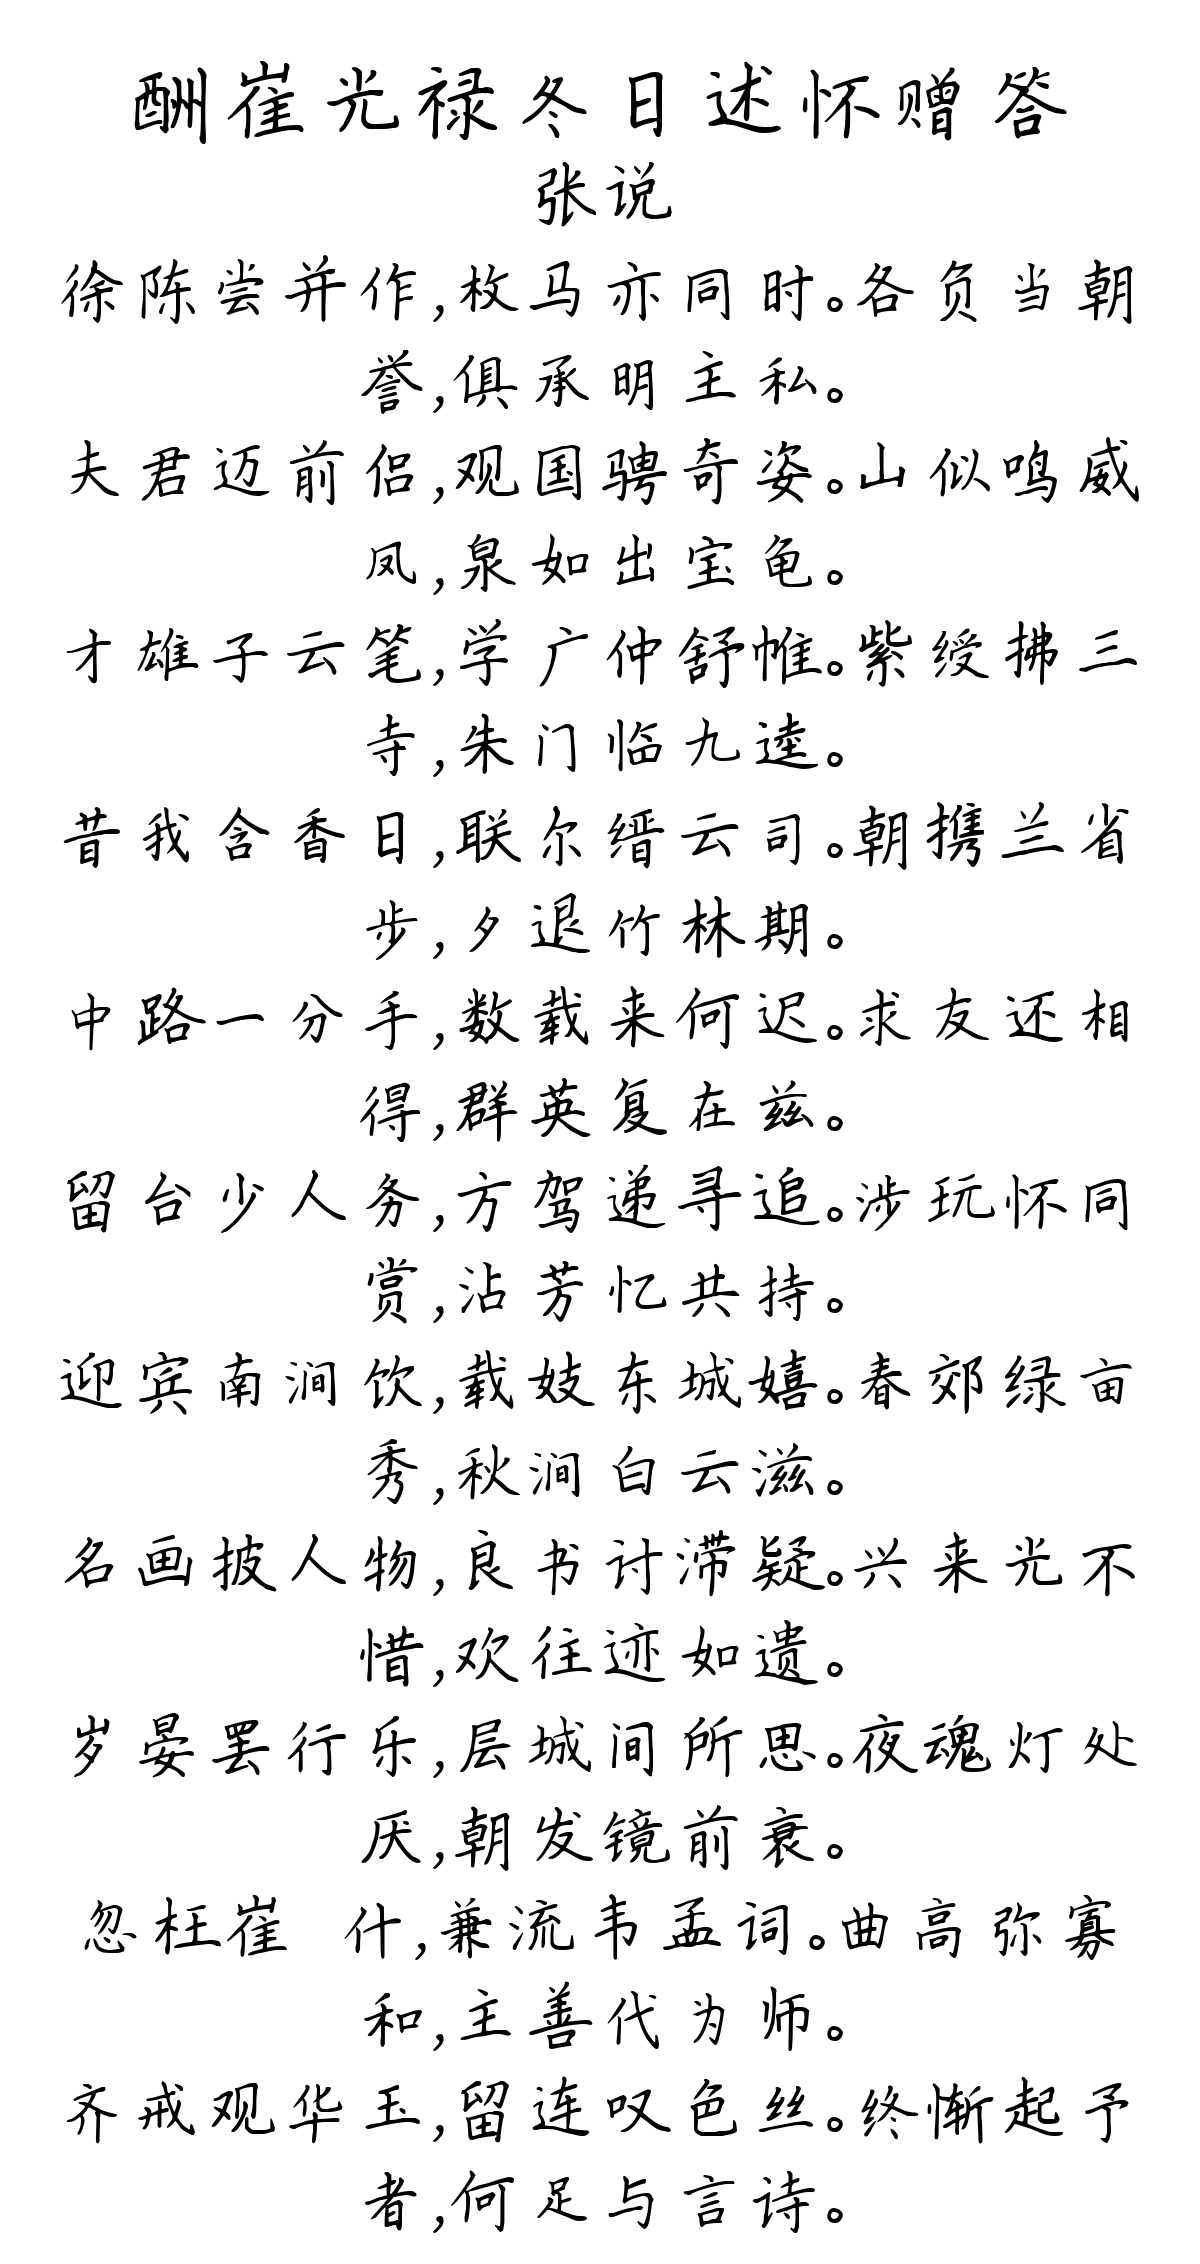 酬崔光禄冬日述怀赠答
张说
徐陈尝并作,枚马亦同时。各负当朝
誉,俱承明主私。
夫君迈前侣,观国骋奇姿。山似鸣威
凤,泉如出宝龟。
才雄子云笔,学广仲舒帷。紫绶拂三
寺,朱门临九逵。
昔我含香日,联尔缙云司。朝携兰省
步,夕退竹林期。
中路一分手,数载来何迟。求友还相
得,群英复在兹。
留台少人务,方驾递寻追。涉玩怀同
赏,沾芳忆共持。
迎宾南涧饮,载妓东城嬉。春郊绿亩
秀,秋涧白云滋。
名画披人物,良书讨滞疑。兴来光不
惜,欢往迹如遗。
岁晏罢行乐,层城间所思。夜魂灯处
厌,朝发镜前衰。
忽枉崔 什,兼流韦孟词。曲高弥寡
和,主善代为师。
齐戒观华玉,留连叹色丝。终惭起予
者,何足与言诗。